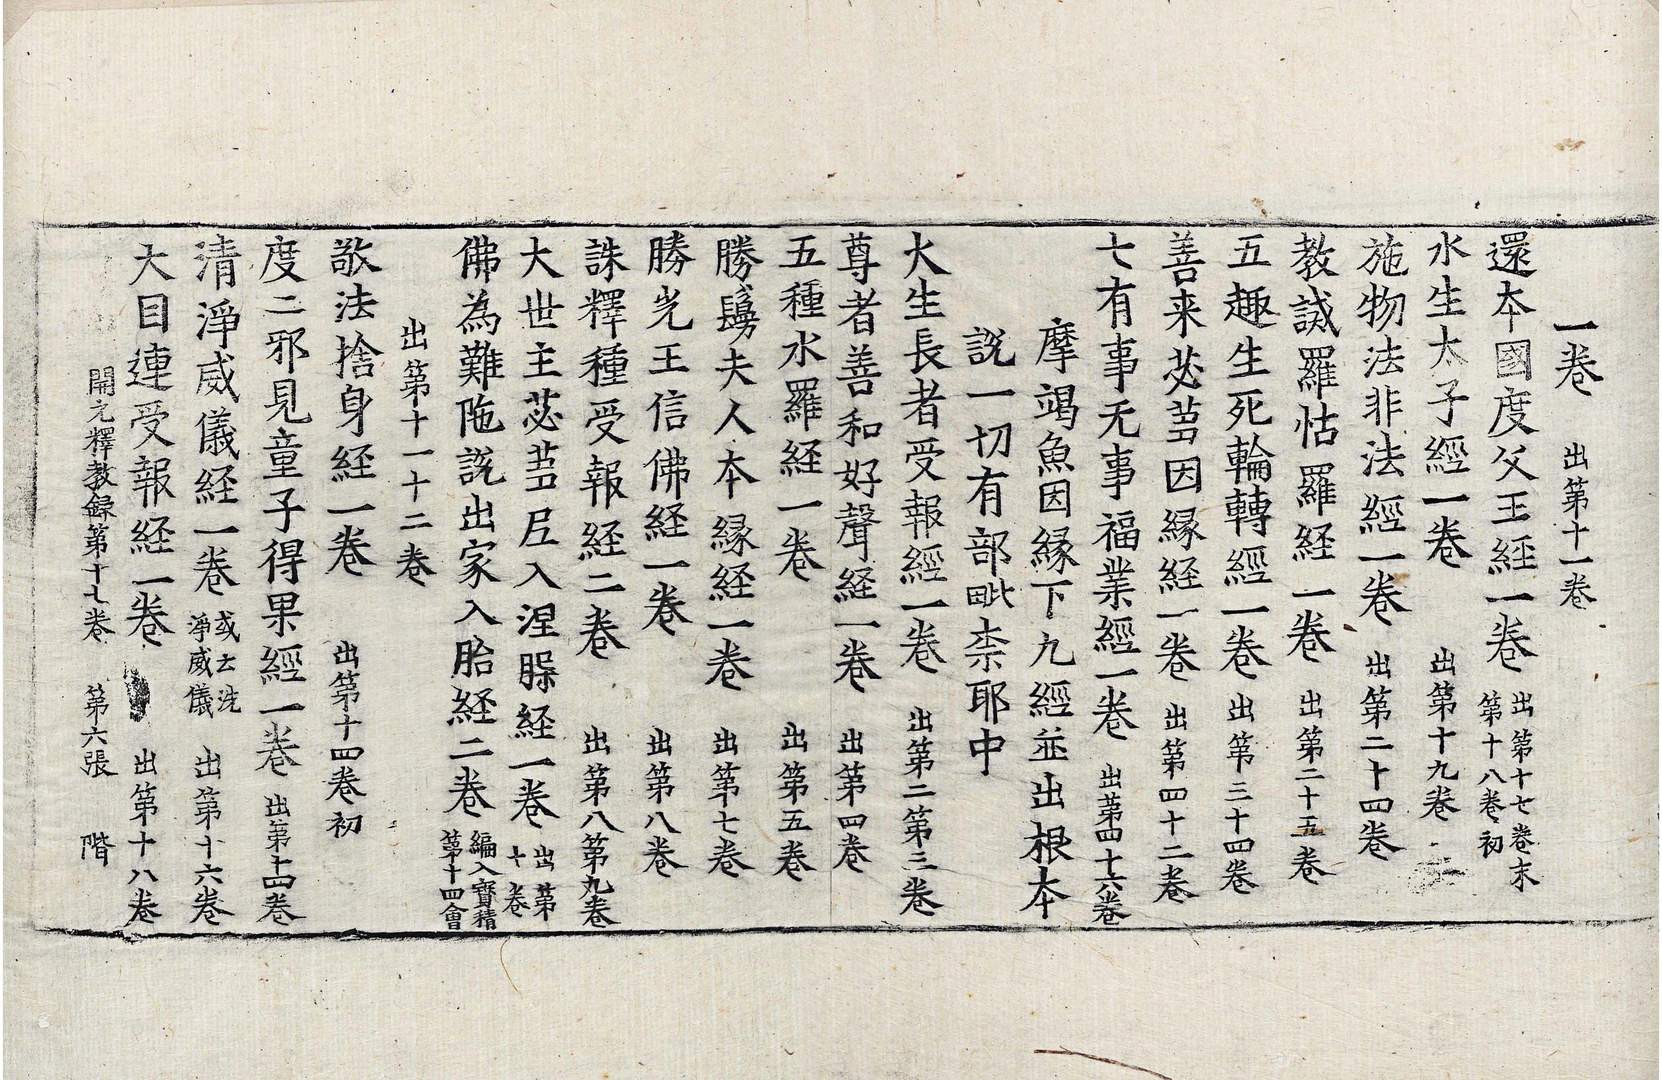 一卷 出第十一卷
還本國度父王經一卷 出第十七卷末第十八卷初
水生太子經一卷 出第十九卷
施物法非法經一卷 出第二十四卷
教誡羅怙羅経一卷 出第二十五卷
五趣生死輪轉經一卷 出第三十四卷
善来苾芻因緣経一卷 出第四十二卷
七有事无事福業經一卷 出苐四十六卷
摩竭魚因緣下九經並出根本
說一切有部毗柰耶中
大生長者受報經一卷 出第二第三卷
尊者善和好聲経一卷 出第四卷
五種水羅経一卷 出第五卷
勝鬘夫人本緣経一卷 出第七卷
勝光王信佛経一卷 出第八卷
誅釋種受報経二卷 出第八第九卷
大世主苾芻尼入涅槃経一卷 出第十卷
佛為難陁說出家入胎経二卷 編入寶積第十四會
出第十一十二卷
敬法捨身経一卷 出第十四卷初
度二邪見童子得果經一卷 出第十四卷
清淨威儀経一卷 或云洗淨威儀 出第十六卷
大目連受報経一卷 出第十八卷
開元釋教録第十七卷 第六張 階